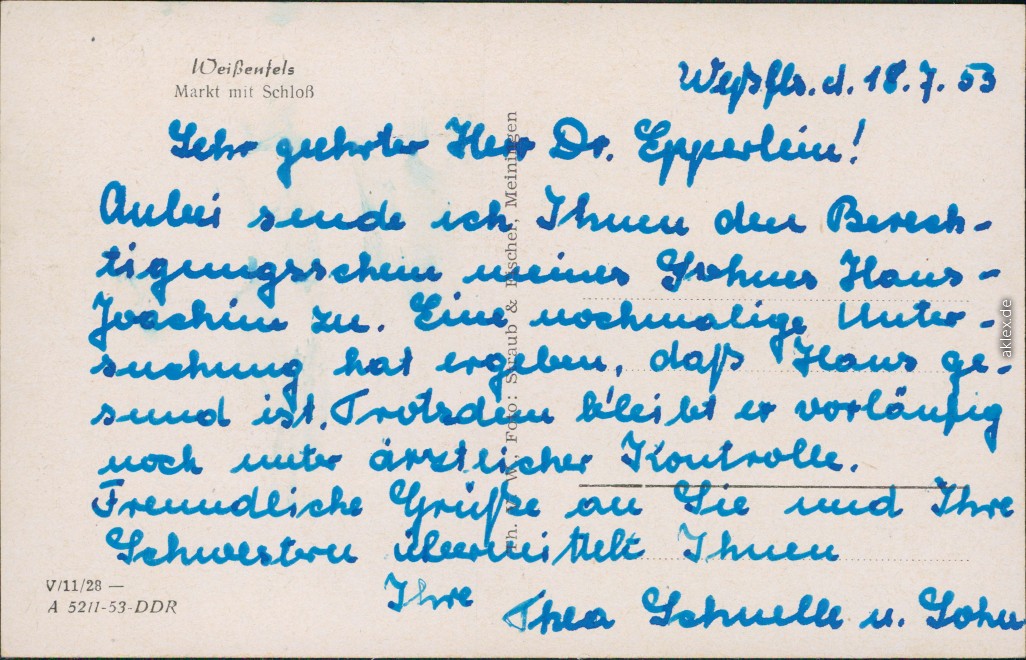 Weißenfels
Markt mit Schloß
Weßfls. d. 18.7.53
Sehr geehrter Herr Dr. Epperlein!
Anbei sende ich Ihnen den Berech-
tigungsschein meines Sohnes Hans-
Joachim zu. Eine nochmalige Unter-
suchung hat ergeben, daß Hans ge-
sund ist. Trotzdem bleibt er vorläufig
noch unter ärztlicher Kontrolle.
Freundliche Grüße an Sie und Ihre
Schwestern übermittelt Ihnen
Ihre
Thea Schnelle u. Sohn
V/11/28 —
A 52/1-53-DDR
Foto: Straub & Fischer, Meiningen
aklex.de